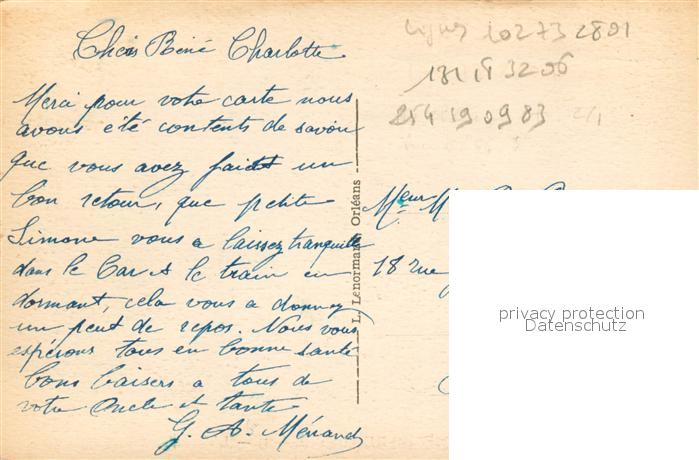 Chers René Charlotte
Merci pour votre carte nous
avons été contents de savoir
que vous avez fait un
bon retour, que petite
Simone vous a laissez tranquille
dans le Car & le train en
dormant, cela vous a donnez
un peut de repos. Nous vous
espérons tous en bonne santé
bons baisers a tous de
votre Oncle et tante
G. A. Ménard
L. Lenormand, Orléans
102 73 2801
131 15 32 06
254 39 09 83
Meur M
18 rue
privacy protection
Datenschutz